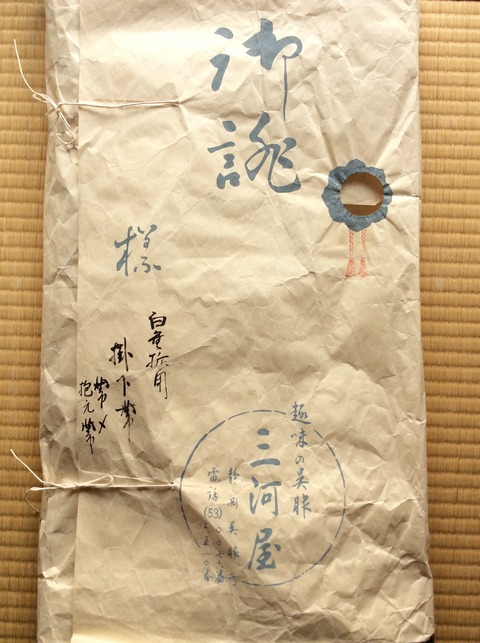 御誂
様
白重振用
掛下帯
帯〆
抱え帯
趣味の呉服
三河屋
静岡呉服町
電話(53)